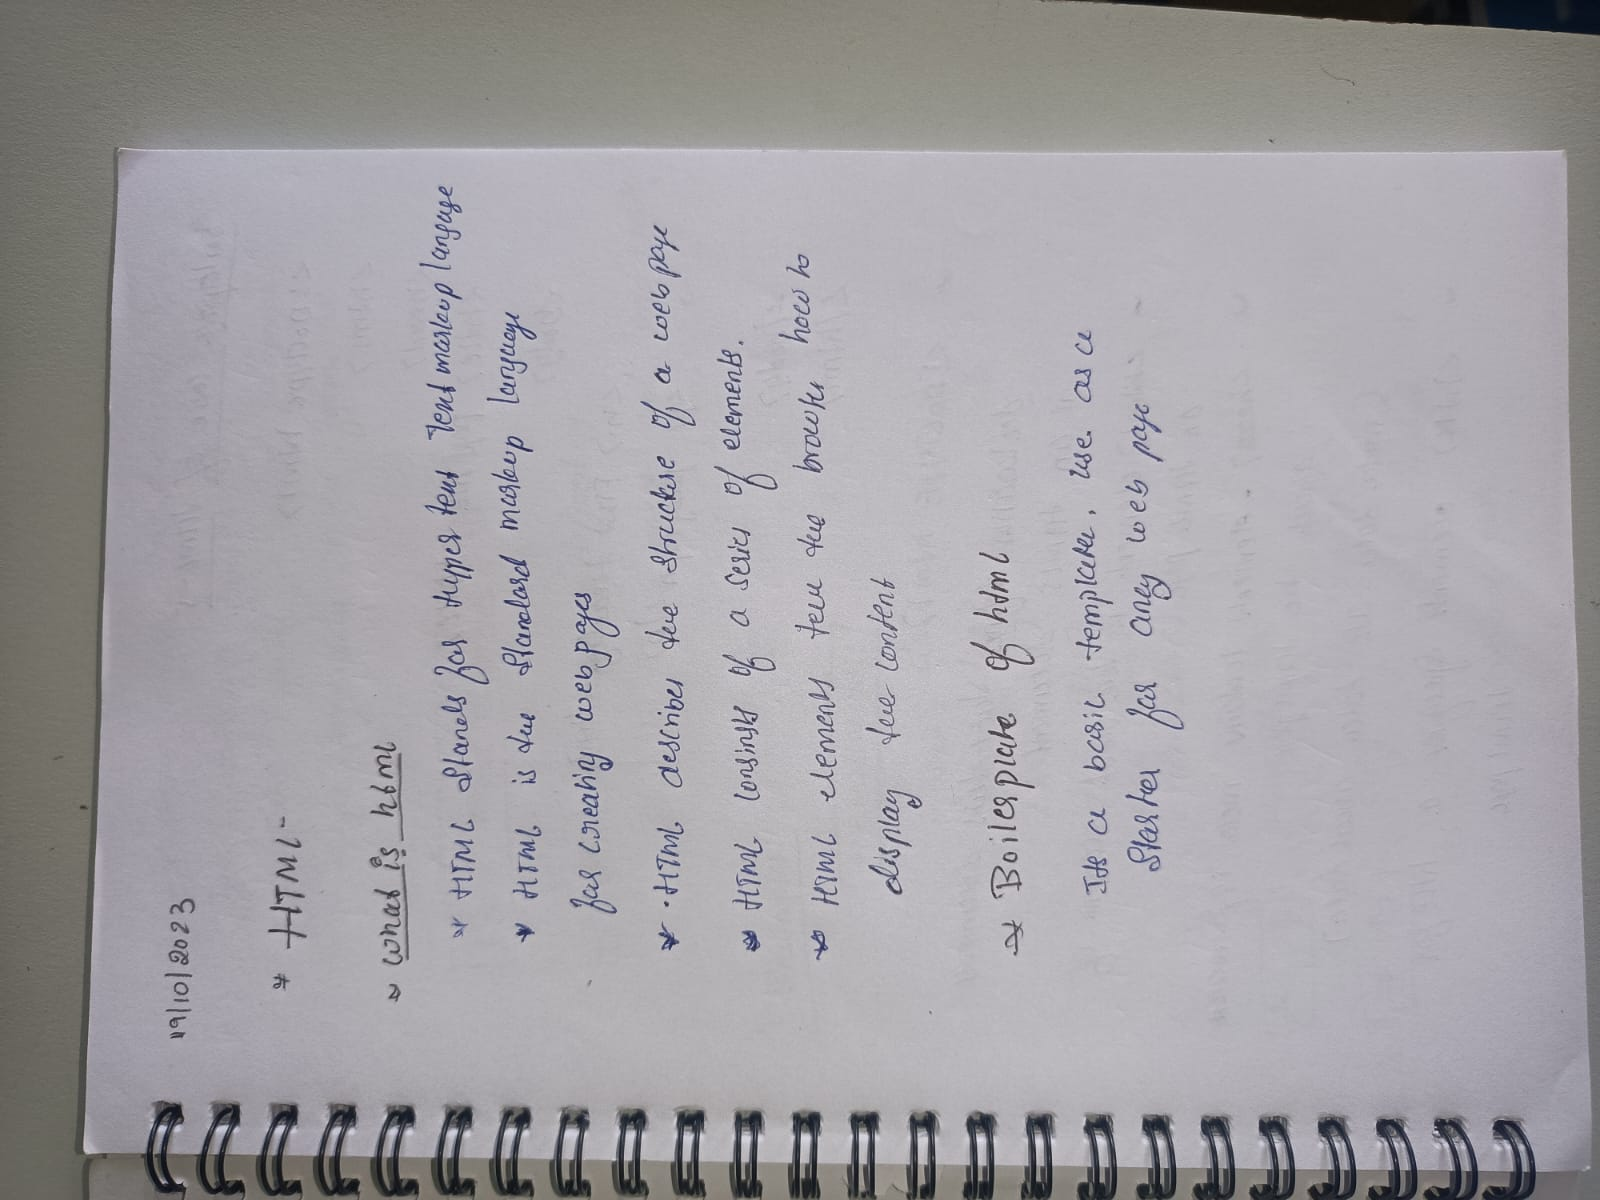 19/10/2023
* HTML -
* what is html
* HTML stands for Hyper text Text markup language
* HTML is the standard markup language
for creating web pages
* . HTML describes the structure of a web page
* HTML consists of a series of elements.
* HTML elements tell the browser how to
display the content
* Boilerplate of html
Its a basic template, use as a
starter for any web page